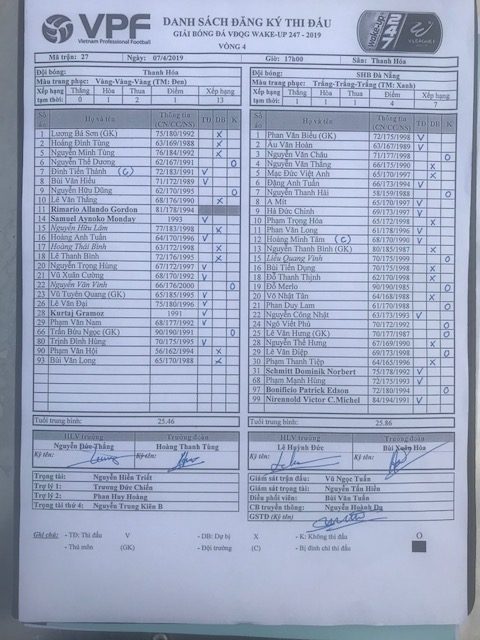 VPF
Vietnam Professional Football
DANH SÁCH ĐĂNG KÝ THI ĐẤU
GIẢI BÓNG ĐÁ VĐQG WAKE-UP 247 - 2019
VÒNG 4
Wake-up 247
V.LEAGUE 1
Mã trận: 27 Ngày: 07/4/2019 Giờ: 17h00 Sân: Thanh Hóa
Đội bóng: Thanh Hóa
Màu trang phục: Vàng-Vàng-Vàng (TM: Đen)
Xếp hạng tạm thời: Thắng Hòa Thua Điểm Xếp hạng
0 1 2 1 13
Số áo Họ và tên Thông tin (CN/CC/NS) TĐ DB K
1 Lương Bá Sơn (GK) 75/180/1992 X
2 Hoàng Đình Tùng 63/169/1988 X
5 Nguyễn Minh Tùng 76/184/1992 X
6 Nguyễn Thế Dương 62/167/1991 O
7 Đinh Tiến Thành (C) 72/183/1991 V
8 Bùi Văn Hiếu 71/172/1989 V
9 Nguyễn Hữu Dũng 62/170/1995 O
10 Lê Văn Thắng 68/176/1990 X
11 Rimario Allando Gordon 81/178/1994
14 Samuel Aynoko Monday 1993 V
15 Nguyễn Hữu Lâm 77/183/1998 X
16 Hoàng Anh Tuấn 64/170/1996 V
17 Hoàng Thái Bình 63/172/1998 X
18 Lê Thanh Bình 72/176/1995 X
20 Nguyễn Trọng Hùng 67/172/1997 V
21 Vũ Xuân Cường 68/170/1992 V
22 Nguyễn Văn Vinh 66/176/2000 O
23 Vũ Tuyên Quang (GK) 65/185/1995 V
26 Lê Văn Đại 75/180/1996 V
28 Kurtaj Gramoz 1991 V
29 Phạm Văn Nam 68/177/1992 V
66 Trần Bửu Ngọc (GK) 90/190/1991 O
80 Trịnh Đình Hùng 70/175/1995 V
90 Phạm Văn Hội 56/162/1994 X
93 Bùi Văn Long 65/170/1988 X
Tuổi trung bình: 25.46
HLV trưởng Trưởng đoàn
Nguyễn Đức Thắng Hoàng Thanh Tùng
Ký tên: Ký tên:
Đội bóng: SHB Đà Nẵng
Màu trang phục: Trắng-Trắng-Trắng (TM: Xanh)
Xếp hạng tạm thời: Thắng Hòa Thua Điểm Xếp hạng
1 1 1 4 7
Số áo Họ và tên Thông tin (CN/CC/NS) TĐ DB K
1 Phan Văn Biểu (GK) 72/175/1998 V
2 Âu Văn Hoàn 63/167/1989 V
3 Nguyễn Văn Châu 71/177/1998 O
4 Nguyễn Văn Thắng 66/175/1990 X
5 Mạc Đức Việt Anh 65/170/1997 X
6 Đặng Anh Tuấn 63/171/1994 V
7 Nguyễn Thanh Hải 58/159/1988 O
8 A Mít 65/170/1997 V
9 Hà Đức Chinh 69/173/1997 V
10 Phạm Trọng Hóa 65/172/1998 X
11 Phan Văn Long 61/178/1996 V
12 Hoàng Minh Tâm (C) 68/170/1990 V
13 Nguyễn Thanh Bình (GK) 80/185/1987 X
15 Liêu Quang Vinh 70/175/1999 O
16 Bùi Tiến Dụng 70/175/1998 X
18 Đỗ Thanh Thịnh 62/170/1998 X
19 Đỗ Merlo 90/190/1985 O
20 Võ Nhật Tân 64/168/1988 X
21 Phan Duy Lam 70/170/1988 O
22 Nguyễn Công Nhật 63/173/1993 V
24 Ngô Viết Phú 70/172/1992 O
25 Lê Văn Hưng (GK) 70/177/1988 O
28 Nguyễn Thế Hưng 67/169/1990 X
29 Lê Văn Điệp 69/173/1998 O
30 Phạm Thanh Tiệp 64/165/1996 X
31 Schmitt Dominik Norbert 75/178/1992 V
68 Phạm Mạnh Hùng 72/175/1993 V
97 Bonificio Patrick Edson 72/180/1994 O
99 Nirennold Victor C.Michel 84/194/1991 V
Tuổi trung bình: 25.86
HLV trưởng Trưởng đoàn
Lê Huỳnh Đức Bùi Xuân Hòa
Ký tên: Ký tên:
Trọng tài: Nguyễn Hiền Triết
Trợ lý 1: Trương Đức Chiến
Trợ lý 2: Phan Huy Hoàng
Trọng tài thứ 4: Nguyễn Trung Kiên B
Giám sát trận đấu: Vũ Ngọc Tuấn
Giám sát trọng tài: Nguyễn Tấn Hiền
Điều phối viên: Bùi Văn Tuấn
CB truyền thông: Nguyễn Hoành Du
GSTĐ (Ký tên)
Ghi chú: - TĐ: Thi đấu V - DB: Dự bị X - K: Không thi đấu O
- Thủ môn (GK) - Đội trưởng (C) - Bị đình chỉ thi đấu